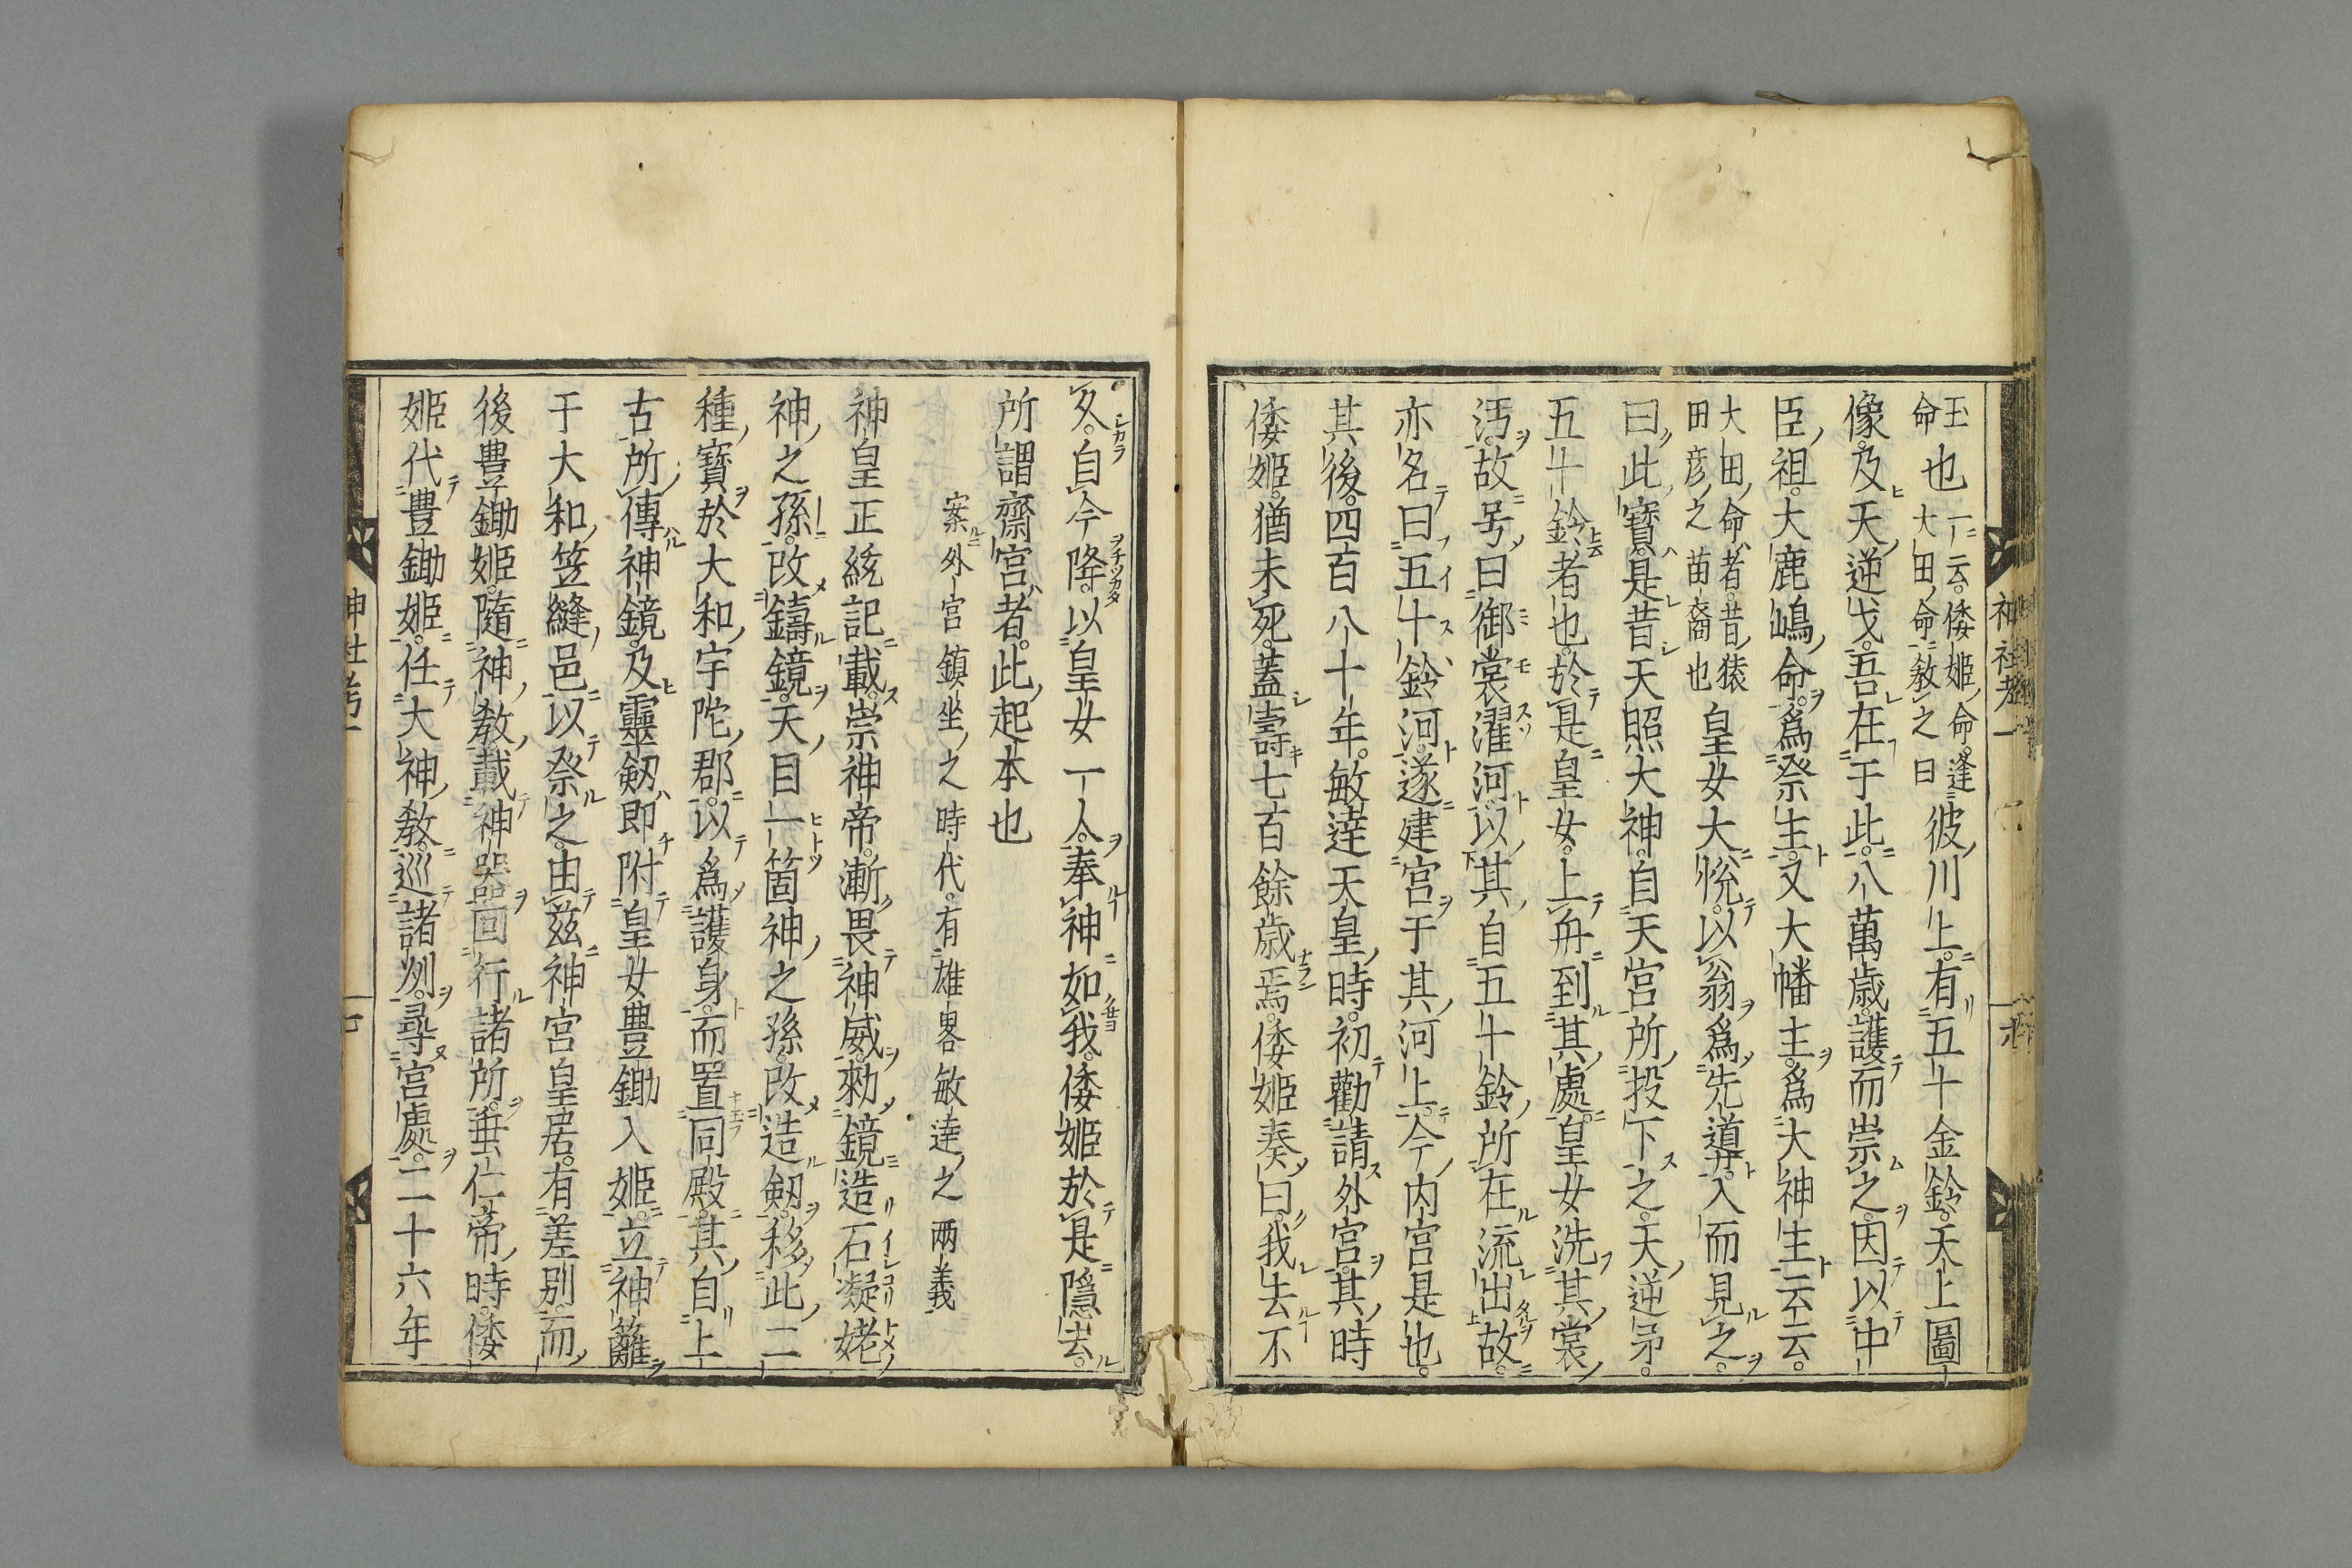 玉命也一云倭姫命逢大田命敎之曰彼川上有五十金鈴天上圖
像及天逆戈吾在于此八萬歳護而崇之因以中
臣祖大鹿嶋命爲祭主又大幡主爲大神主云云
大田命者昔猿田彦之苗裔也皇女大悦以翁爲先導入而見之
曰此寶是昔天照大神自天宮所投下之天逆矛
五十鈴者也於是皇女上舟到其處皇女洗其裳
汚故号曰御裳濯河以其自五十鈴所在流出故
亦名曰五十鈴河遂建宮于其河上今内宮是也
其後四百八十年敏達天皇時初勸請外宮其時
倭姫猶未死蓋壽七百餘歳焉倭姫奏曰我去不
久自今降以皇女一人奉神如我倭姫於是隱去
所謂齋宮者此起本也
案外宮鎮坐之時代有雄畧敏達之兩義
神皇正統記載崇神帝漸畏神威勑鏡造石凝姥
神之孫改鑄鏡天目一箇神之孫改造劔移此二
種寶於大和宇陀郡以爲護身而置同殿其自上
古所傳神鏡及靈劔即附皇女豊鋤入姫立神籬
于大和笠縫邑以祭之由玆神宮皇居有差別而
後豊鋤姫隨神敎戴神器回行諸所垂仁帝時倭
姫代豊鋤姫任大神敎巡諸州尋宮處二十六年
神社考一
神社考一